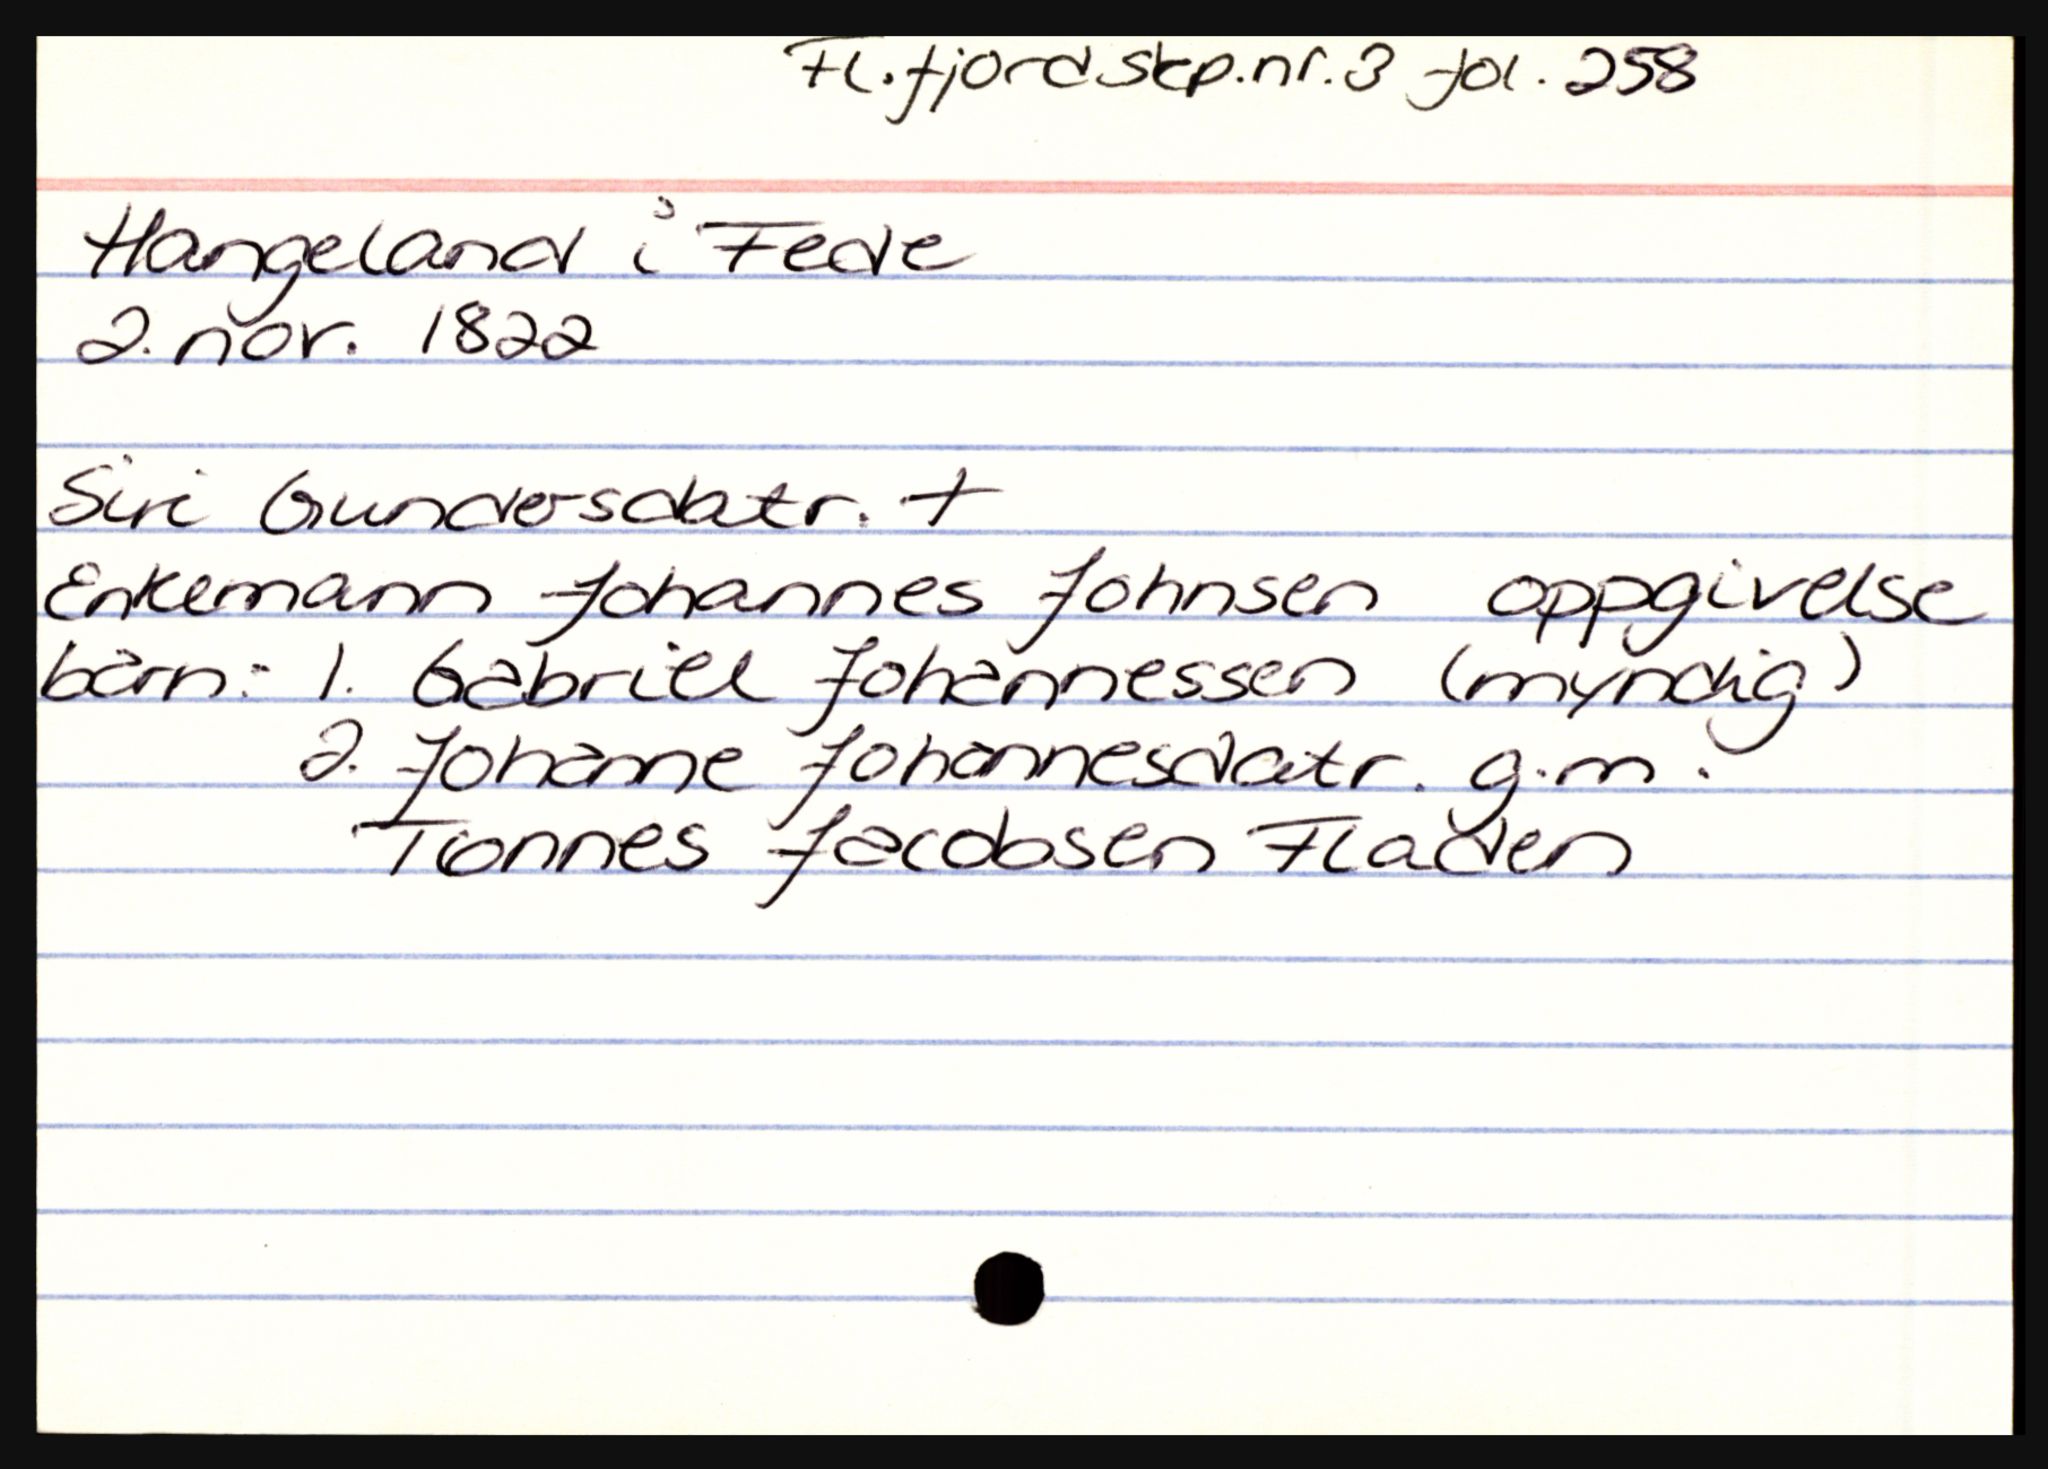 Fl.fjord skp.nr. 3 fol. 258
Hangeland i Fede
2. nov. 1822
Siri Gundersdatr. +
Enkemann Johannes Johnsen oppgivelse
barn: 1. Gabriel Johannessen (myndig)
2. Johanne Johannesdatr. g.m.
Tønnes Jacobsen Fladen